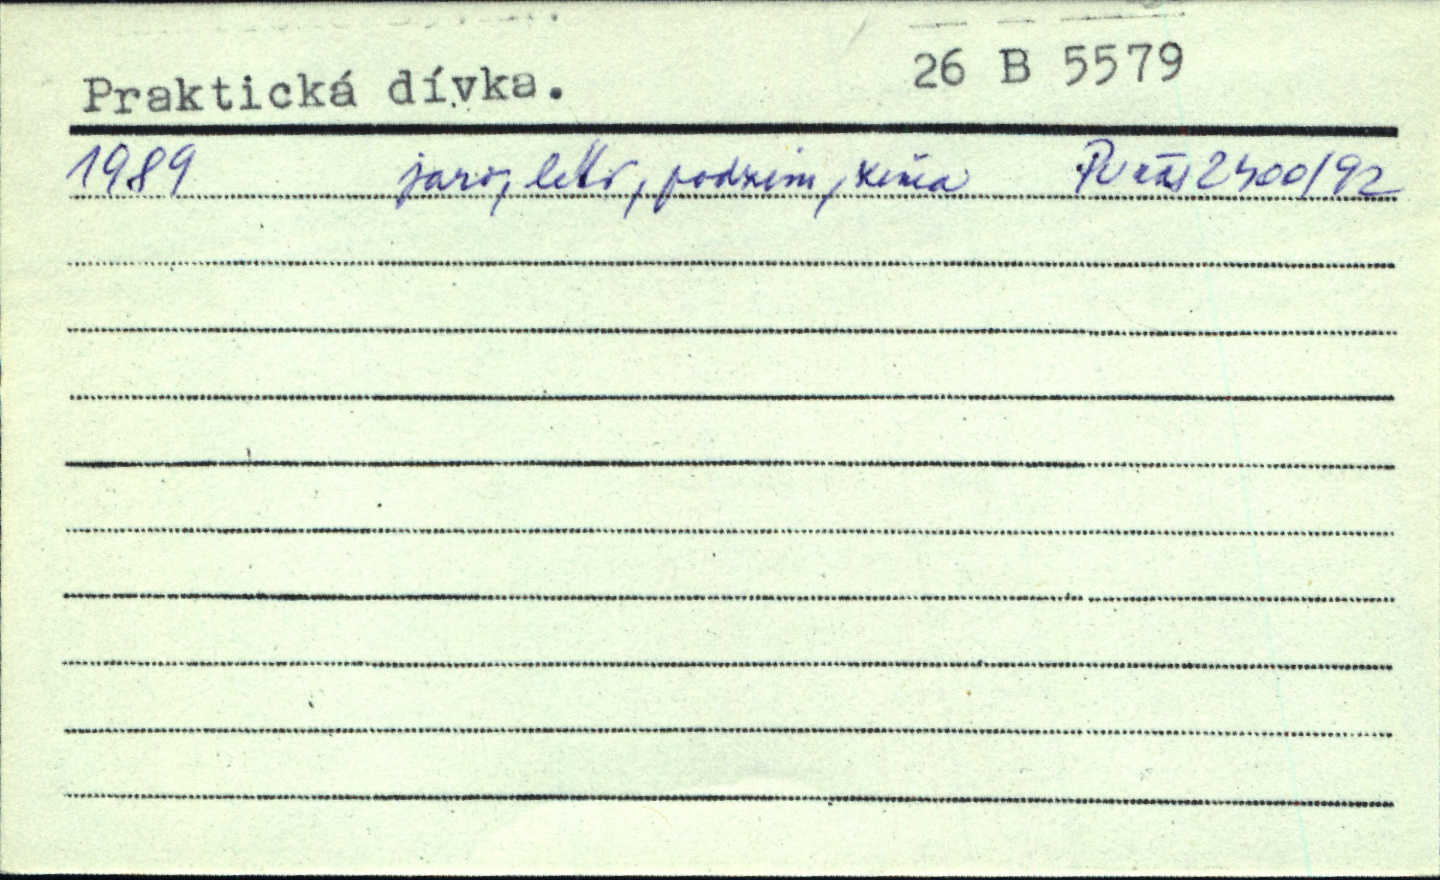 Praktická dívka. 26 B 5579
1989 jaro, léto, podzim, zima 2400/92